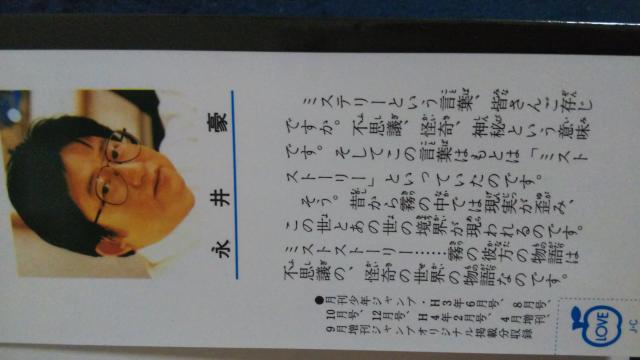 永井豪
ミステリーという言葉、皆さんご存じ
ですか。不思議、怪奇、神秘という意味
です。そしてこの言葉はもとは「ミスト
ストーリー」といっていたのです。
そう。昔から霧の中では現実が歪み、
この世とあの世の境界が現われるのです。
ミストストーリー……霧の彼方の物語は
不思議の、怪奇の世界の物語なのです。
●月刊少年ジャンプ・H3年6月号、8月号、
10月号、12月号、H4年2月号、4月増刊
9月増刊ジャンプオリジナル掲載分収録
LOVE
J・C